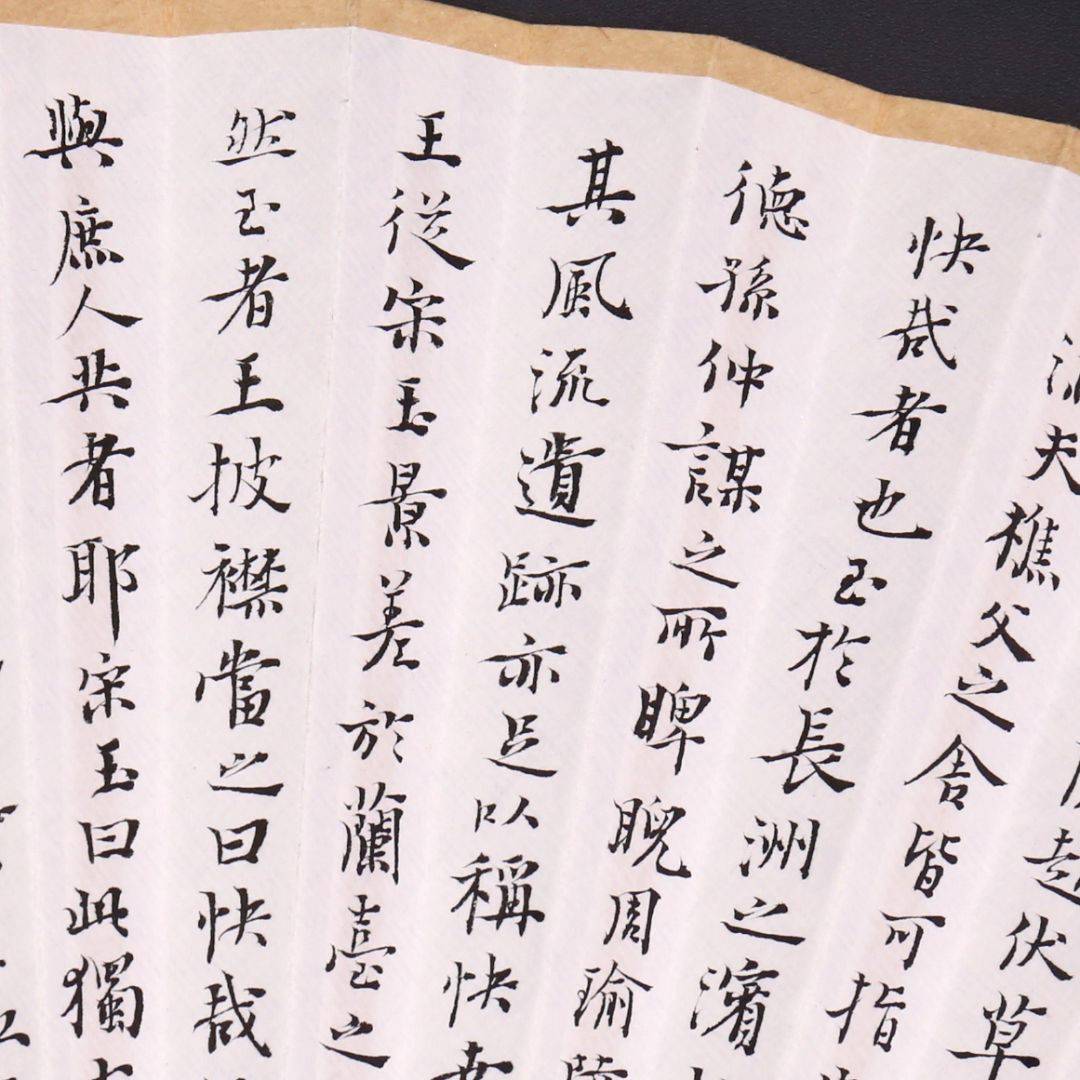 起伏草
夫樵父之舍皆可指
快哉者也至於長洲之濱
德孫仲謀之所睥睨周瑜陸
其風流遺跡亦足以稱快世
王從宋玉景差於蘭臺之
然至者王披襟當之曰快哉
與庶人共者耶宋玉曰此獨